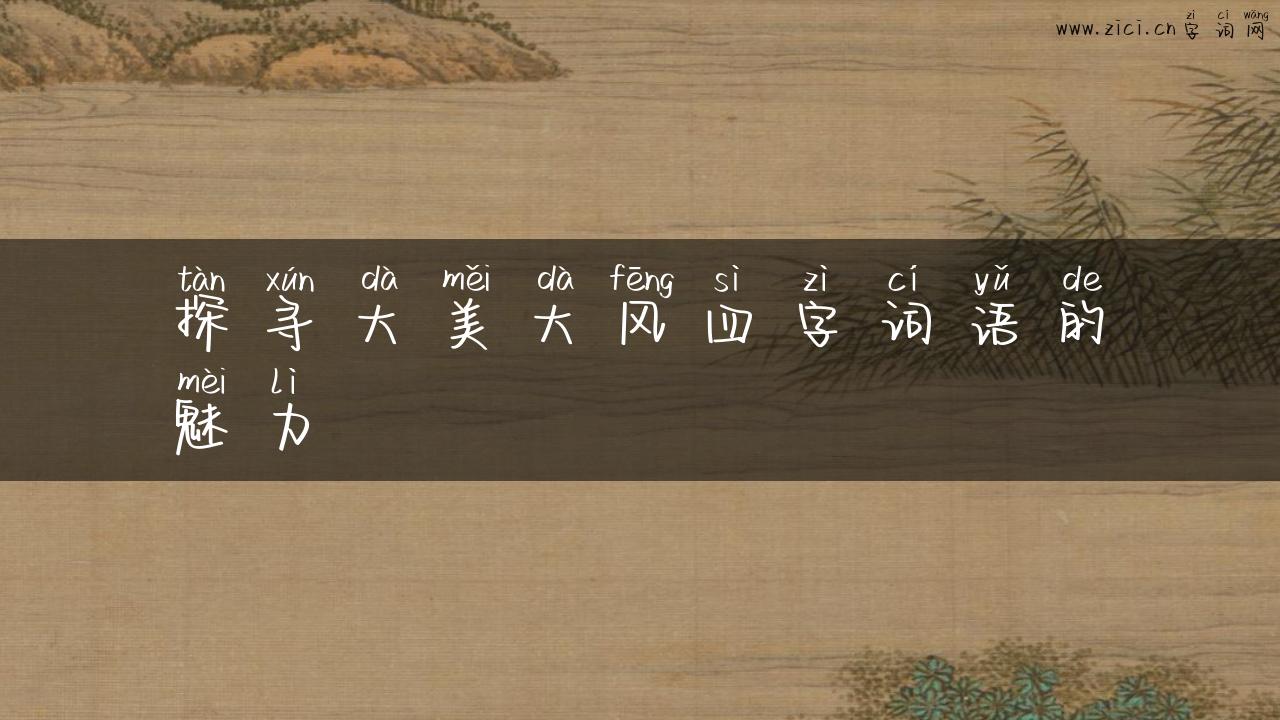 zì cí wǎng
www.zici.cn字词网
tàn xún dà měi dà fēng sì zì cí yǔ de
探寻大美大风四字词语的
mèi lì
魅力